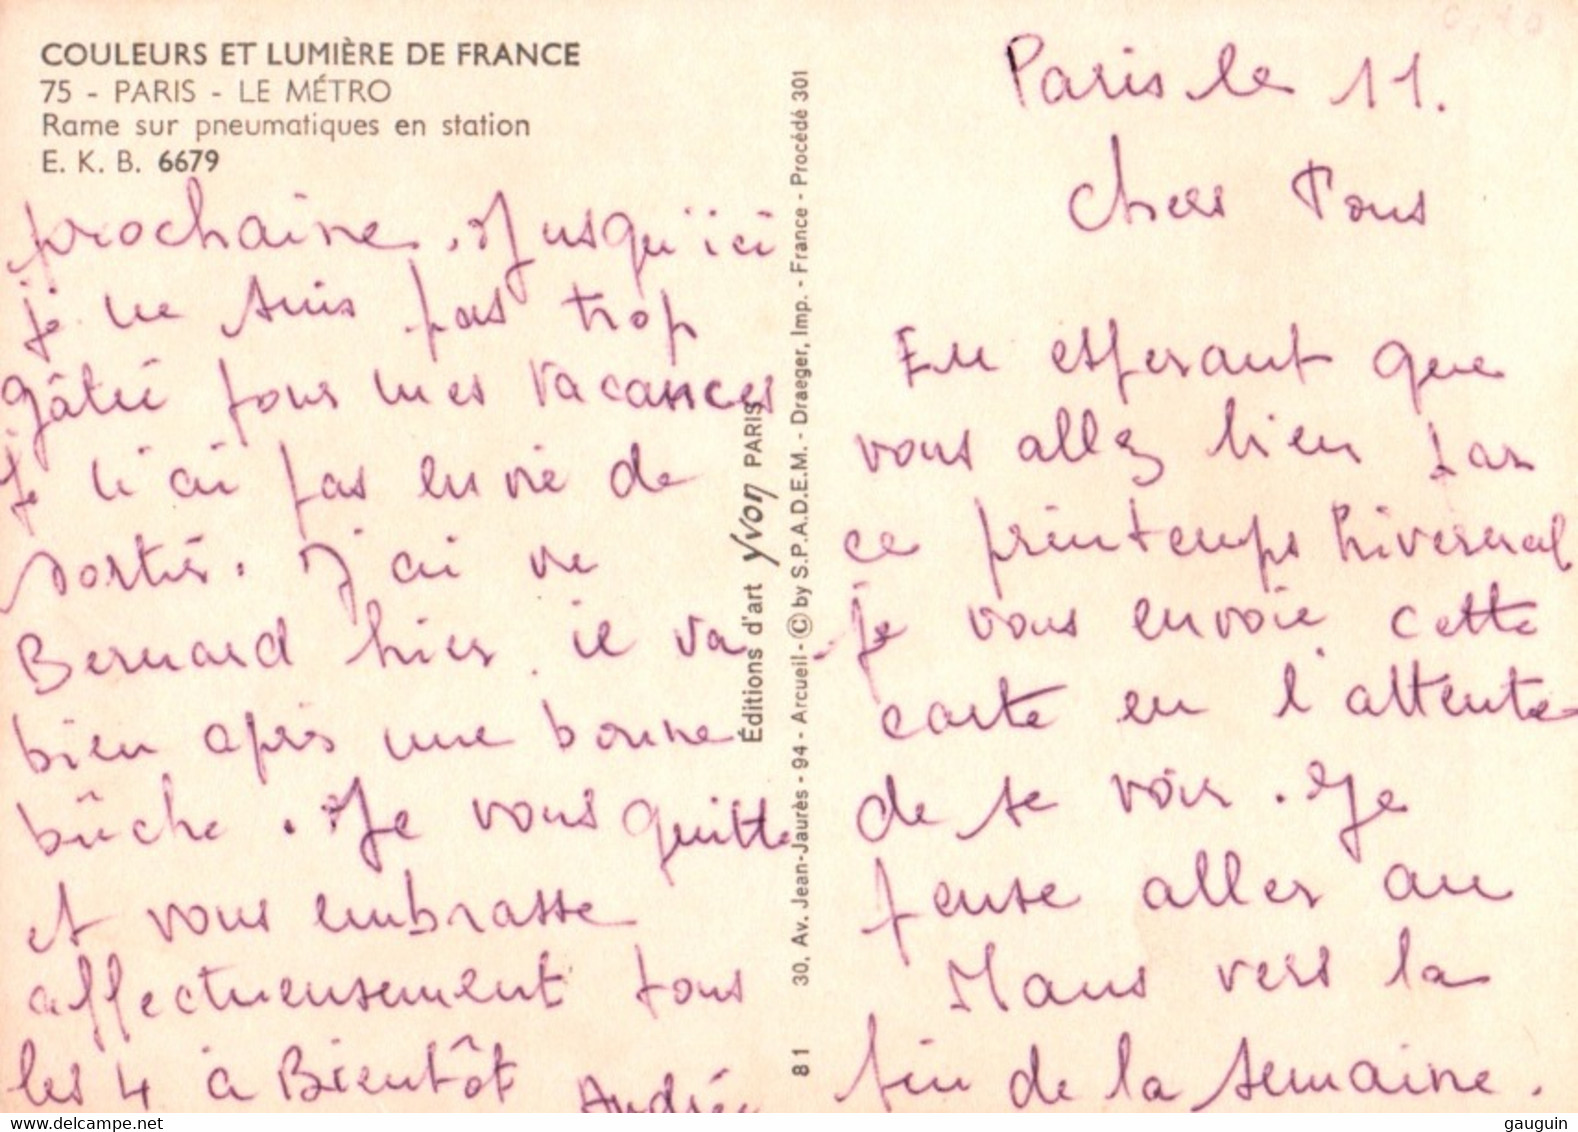 COULEURS ET LUMIÈRE DE FRANCE
75 - PARIS - LE MÉTRO
Rame sur pneumatiques en station
E. K. B. 6679
Paris le 11.
Chers Tous
En esperant que
vous allez bien par
ce printemps hivernal
je vous envoie cette
carte en l'attente
de se voir. Je
pense aller au
Mans vers la
fin de la semaine
prochaine. Jusqu'ici
je ne suis pas trop
gâtée pour mes vacances
Je n'ai pas envie de
sortir. J'ai vu
Bernard hier. il va
bien après une bonne
bûche. Je vous quitte
et vous embrasse
affectueusement tous
les 4 à Bientôt
Andrée
Éditions d'art Yvon PARIS
81 30, Av. Jean-Jaurès - 94 - Arcueil - © by S.P.A.D.E.M. - Draeger, Imp. - France - Procédé 301
gauguin © delcampe.net